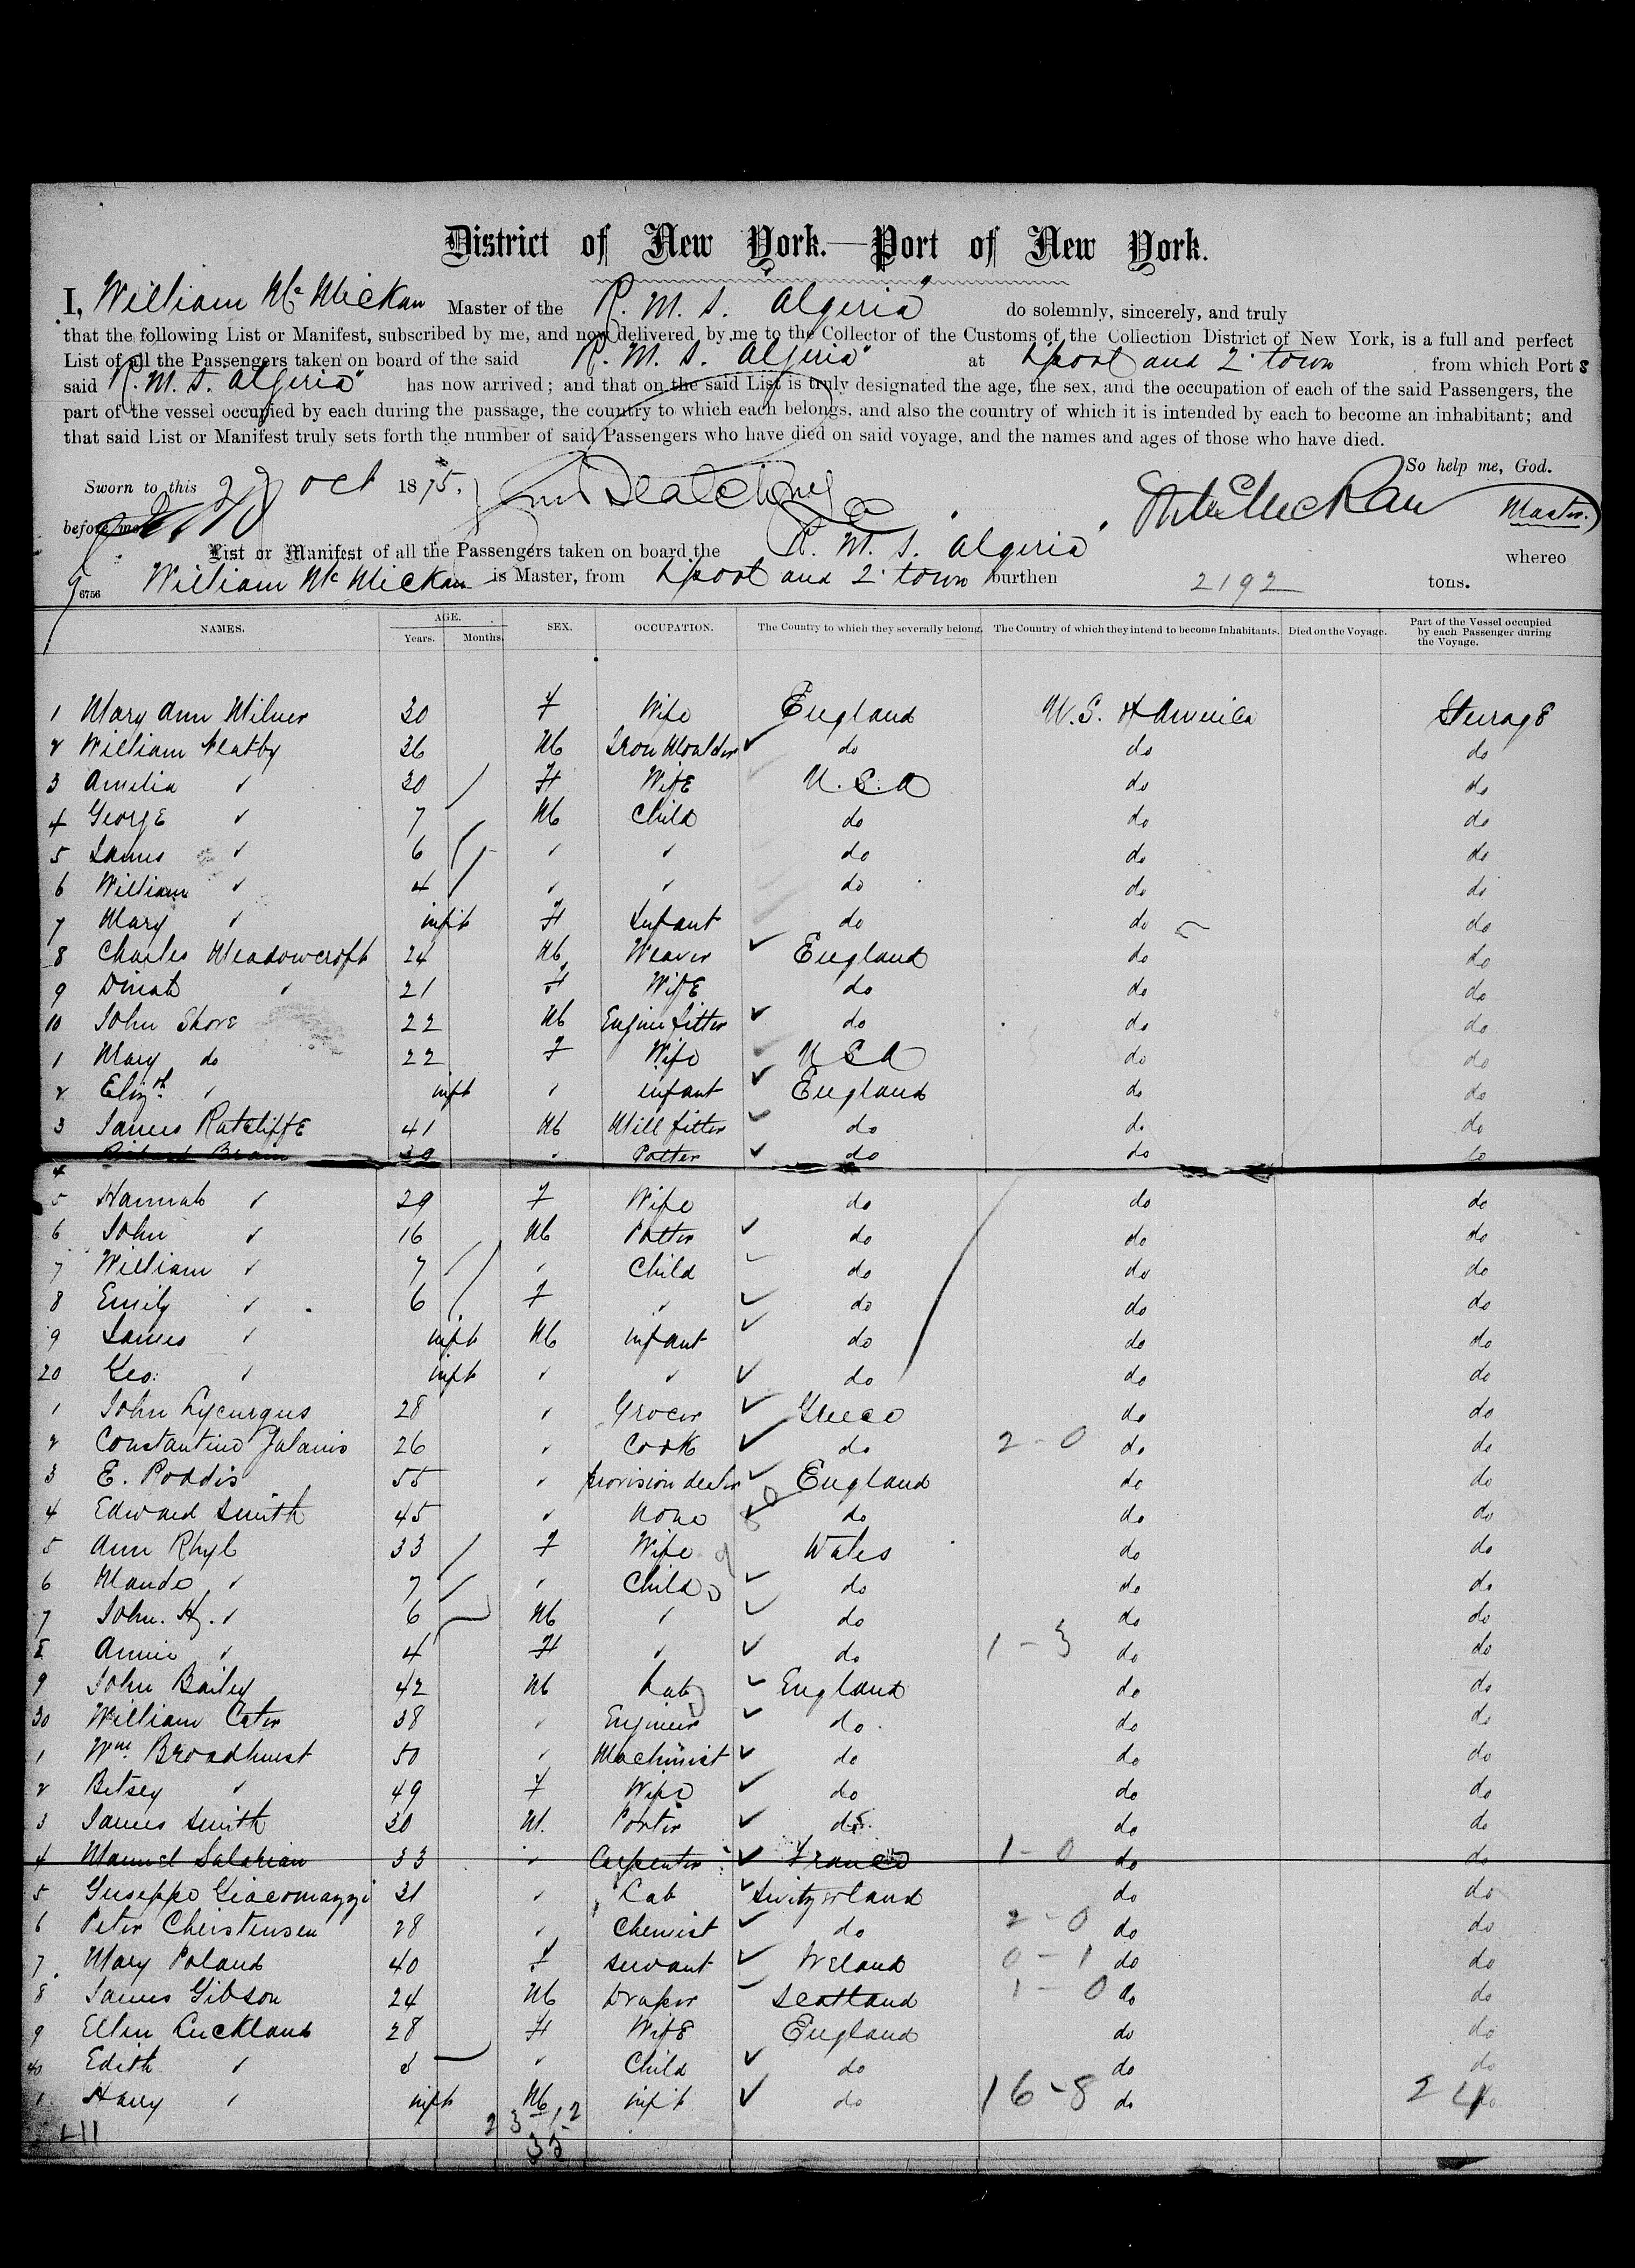 District of New York.—Port of New York.
I, William McMickan Master of the R. M. S. "Algeria" do solemnly, sincerely, and truly
that the following List or Manifest, subscribed by me, and now delivered by me to the Collector of the Customs of the Collection District of New York, is a full and perfect
List of all the Passengers taken on board of the said R. M. S. Algeria" at Lpool and 2. town from which Port s
said R. M. S. Algeria" has now arrived; and that on the said List is truly designated the age, the sex, and the occupation of each of the said Passengers, the
part of the vessel occupied by each during the passage, the country to which each belongs, and also the country of which it is intended by each to become an inhabitant; and
that said List or Manifest truly sets forth the number of said Passengers who have died on said voyage, and the names and ages of those who have died.
So help me, God.
Sworn to this Oct 1875.
before me Master.
List or Manifest of all the Passengers taken on board the R. M. S. Algeria" whereo
6756 William McMickan is Master, from Lpool and 2. town burthen 2192 tons.
NAMES. AGE. Years. Months. SEX. OCCUPATION. The Country to which they severally belong. The Country of which they intend to become Inhabitants. Died on the Voyage. Part of the Vessel occupied by each Passenger during the Voyage.
1 Mary Ann Milner 30 F Wife England U.S. America Steerage
2 William Neatby 36 M Iron Moulder do do do
3 Amelia " 30 F Wife U.S.A do do
4 George " 7 M Child do do do
5 James " 6 " " do do do
6 William " 4 " " do do do
7 Mary " inft F Infant do do do
8 Charles Meadowcroft 24 M Weaver England do do
9 Dinah " 21 F Wife do do do
10 John Shore 22 M Engine fitter do do do
1 Mary do 22 F Wife USA do do
2 Elizth " inft " infant England do do
3 James Ratcliffe 41 M Mill fitter do do do
4 Brain 39 " Potter do do do
5 Hannah " 29 F Wife do do do
6 John " 16 M Potter do do do
7 William " 7 " Child do do do
8 Emily " 6 F " do do do
9 James " inft M infant do do do
20 Geo: " inft " " do do do
1 John Lycurgus 28 " Grocer Greece do do
2 Constantine Galanis 26 " Cook do 2-0 do do
3 E. Poddis 55 " provision dealer England do do
4 Edward Smith 45 " None do do do
5 Ann Rhyl 33 F Wife Wales do do
6 Maude " 7 " Child do do do
7 John. H. " 6 M " do do do
8 Annie " 4 F " do 1-3 do do
9 John Bailey 42 M Lab England do do
30 William Cater 38 " Engineer do do do
1 Wm. Broadhurst 50 " Machinist do do do
2 Betsey " 49 F Wife do do do
3 James Smith 30 M. Porter do do do
4 Manuel Salahian 33 " Carpenter France 1-0 do do
5 Guseppe Giacomazzi 31 " Lab Switzerland do do
6 Peter Christensen 28 " Chemist do 2-0 do do
7 Mary Poland 40 F Servant Ireland 0-1 do do
8 James Gibson 24 M Draper Scotland 1-0 do do
9 Ellen Luckland 28 F Wife England do do
40 Edith " 3 " Child do do do
1 Harry " inft M inft do 16-8 do 24 do